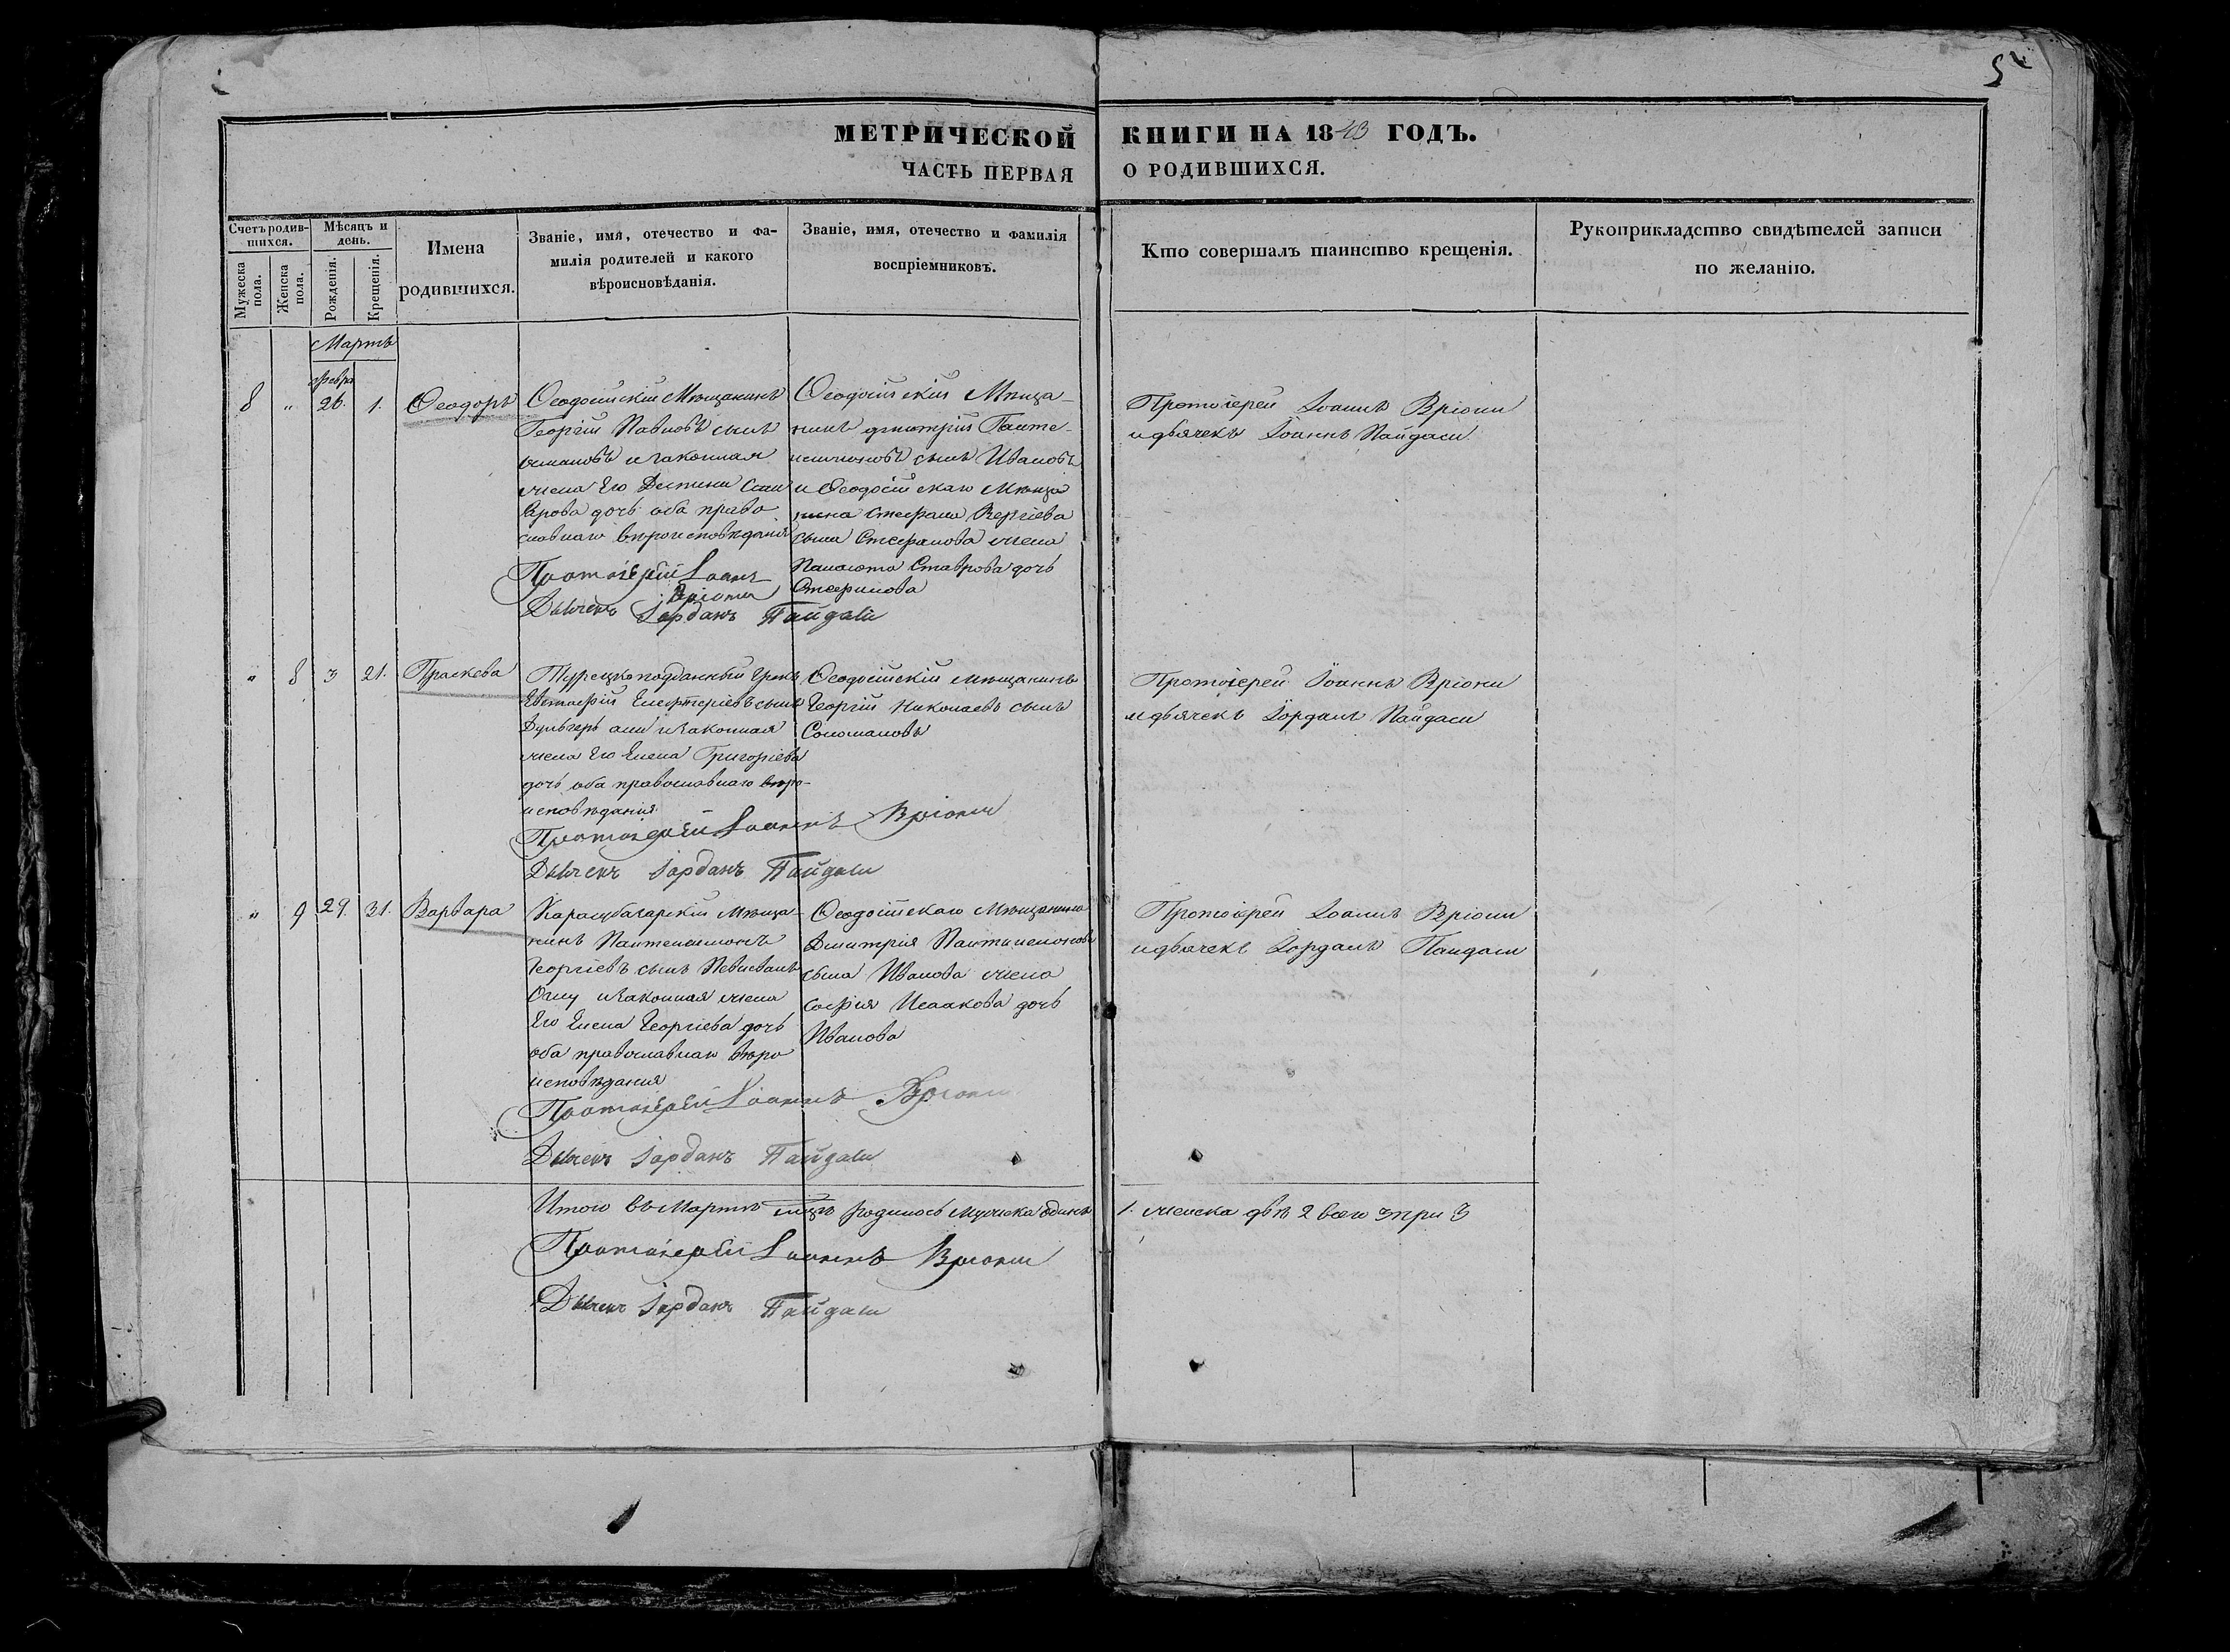 5
МЕТРИЧЕСКОЙ КНИГИ НА 1843 ГОДЪ.
ЧАСТЬ ПЕРВАЯ О РОДИВШИХСЯ.
Счетъ родившихся.
Мужеска пола.
Женска пола.
Мѣсяцъ и день.
Рожденія.
Крещенія.
Имена
родившихся.
Званіе, имя, отечество и фа-
милія родителей и какого
вѣроисповѣданія.
Званіе, имя, отечество и фамилія
воспріемниковъ.
Кто совершалъ таинство крещенія.
Рукоприкладство свидѣтелей записи
по желанію.
Мартъ
февр
8 „ 26. 1. Ѳеодоръ
Ѳеодосійскій Мѣщанинъ
Георгій Павловъ сынъ
и законная
жена Его
дочь оба право
славнаго вѣроисповѣданія
Протоіерей Іоаннъ
Вріони
Дьячекъ Іорданъ Пайдаси
Ѳеодосійскій Мѣща-
нинъ Дмитрій Панте-
леимоновъ сынъ Ивановъ
и Ѳеодосійскаго Мѣща
нина Стефана
сына Стефанова жена
Ставрова дочь
Стефанова
Протоіерей Іоаннъ Вріони
и дьячекъ Іоаннъ Пайдаси
„ 8 3 21. Праскева
Турецкоподданный Грекъ
Евстафій Елефтеріевъ сынъ
и законная
жена Его Елена Григоріева
дочь оба православнаго вѣро-
исповѣданія
Протоіерей Іоаннъ Вріони
Дьячекъ Іорданъ Пайдаси
Ѳеодосійскій мѣщанинъ
Георгій Николаевъ сынъ
Соломановъ
Протоіерей Іоаннъ Вріони
и дьячекъ Іорданъ Пайдаси
„ 9 29. 31. Варвара
Карасубазарскій Мѣща-
нинъ Пантелеимонъ
Георгіевъ сынъ
Оглу и законная жена
Его Елена Георгіева дочь
оба православнаго вѣро
исповѣданія
Протоіерей Іоаннъ Вріони
Дьячекъ Іорданъ Пайдаси
Ѳеодосійскаго Мѣщанина
Дмитрія Пантилеимонова
сына Иванова жена
Софія Исаакова дочь
Иванова
Протоіерей Іоаннъ Вріони
и дьячекъ Іорданъ Пайдаси
Итого въ Мартѣ мцѣ родилось мужска одинъ 1. женска двѣ 2 всего три 3
Протоіерей Іоаннъ Вріони
Дьячекъ Іорданъ Пайдаси